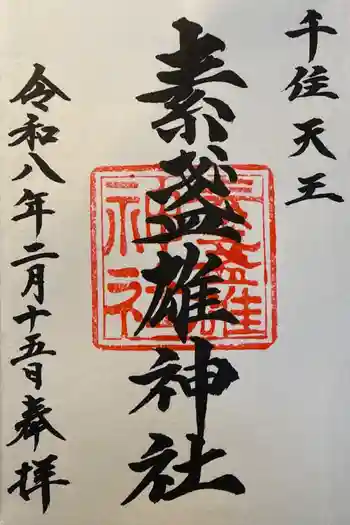 千住天王
素盞雄神社
令和八年二月十五日奉拝
素盞雄
神社